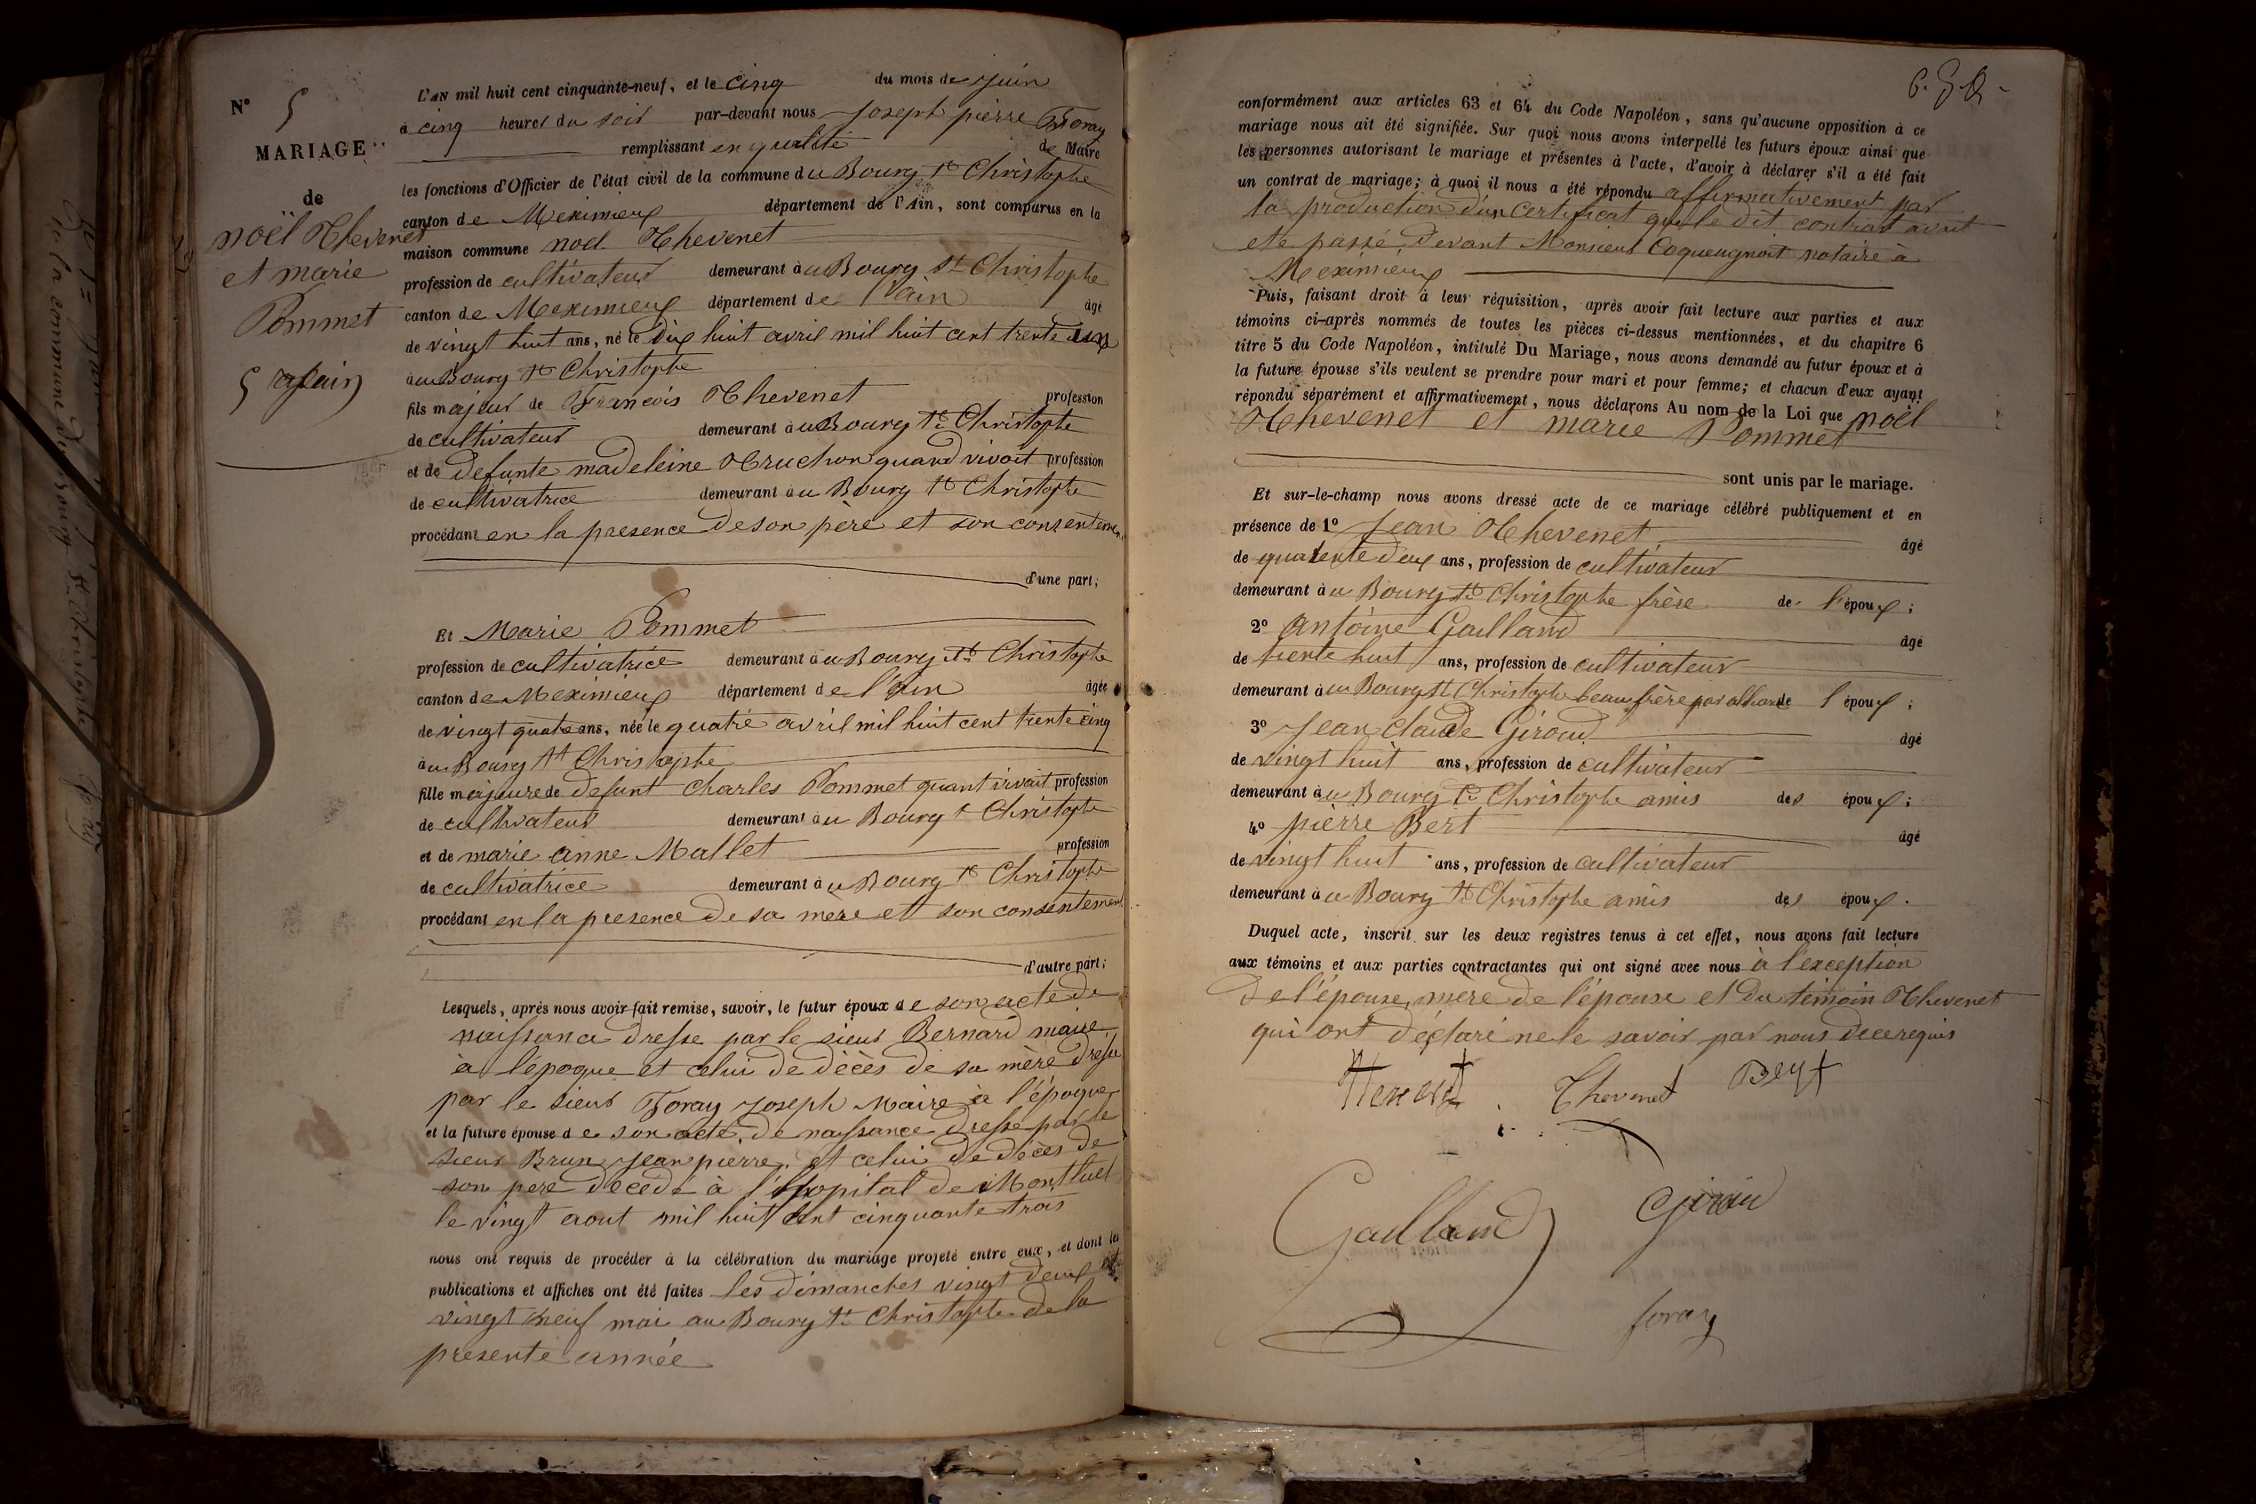 N° 5
MARIAGE
de
noël Thevenet
et marie
Pommet
5 juin
L'AN mil huit cent cinquante-neuf, et le cinq du mois de juin
à cinq heures du soir par-devant nous Joseph pierre Foray
remplissant en qualité de Maire
les fonctions d'Officier de l'état civil de la commune du Bourg St Christophe
canton de Meximieux département de l'Ain, sont comparus en la
maison commune noel Thevenet
profession de cultivateur demeurant à au Bourg St Christophe
canton de Meximieux département de l'ain âgé
de vingt huit ans, né le dix huit avril mil huit cent trente un
à au Bourg St Christophe
fils majeur de François Thevenet profession
de cultivateur demeurant à au Bourg St Christophe
et de defunte madeleine Truchon quand vivoit profession
de cultivatrice demeurant à au Bourg St Christophe
procédant en la presence de son père et son consenteme
d'une part;
Et Marie Pommet
profession de cultivatrice demeurant à au Bourg St Christophe
canton de Meximieux département de l'ain âgée
de vingt quatre ans, née le quatre avril mil huit cent trente cinq
à au Bourg St Christophe
fille majeure de defunt Charles Pommet quant vivait profession
de cultivateur demeurant à au Bourg St Christophe
et de marie anne Mallet profession
de cultivatrice demeurant à au Bourg St Christophe
procédant en la presence de sa mère et son consentement
d'autre part;
Lesquels, après nous avoir fait remise, savoir, le futur époux de son acte de
naissance dresse par le sieur Bernard maire
à l'époque et celui de décès de sa mère dresse
par le sieur Foray Joseph Maire à l'époque
et la future épouse de son acte de naissance dresse par le
sieur Brun Jean pierre et celui de décès de
son pere décédé à l'hopital de Montluel
le vingt aout mil huit cent cinquante trois
nous ont requis de procéder à la célébration du mariage projeté entre eux, et dont la
publications et affiches ont été faites les dimanches vingt deux et
vingt neuf mai au Bourg St Christophe de la
presente année
conformément aux articles 63 et 64 du Code Napoléon, sans qu'aucune opposition à ce
mariage nous ait été signifiée. Sur quoi nous avons interpellé les futurs époux ainsi que
les personnes autorisant le mariage et présentes à l'acte, d'avoir à déclarer s'il a été fait
un contrat de mariage; à quoi il nous a été répondu affirmativement par
la production d'un certificat que le dit contrat avait
ete passé devant Monsieur Coqueugniot notaire à
Meximieux
Puis, faisant droit à leur réquisition, après avoir fait lecture aux parties et aux
témoins ci-après nommés de toutes les pièces ci-dessus mentionnées, et du chapitre 6
titre 5 du Code Napoléon, intitulé Du Mariage, nous avons demandé au futur époux et à
la future épouse s'ils veulent se prendre pour mari et pour femme; et chacun d'eux ayant
répondu séparément et affirmativement, nous déclarons Au nom de la Loi que noël
Thevenet et marie Pommet
sont unis par le mariage.
Et sur-le-champ nous avons dressé acte de ce mariage célébré publiquement et en
présence de 1° Jean Thevenet âgé
de quarente deux ans, profession de cultivateur
demeurant à au Bourg St Christophe frère de l'époux;
2° antoine Gailland âgé
de trente huit ans, profession de cultivateur
demeurant à au Bourg St Christophe beau frère par alliance de l époux;
3° Jean claude Giroud âgé
de vingt huit ans, profession de cultivateur
demeurant à au Bourg St Christophe amis des époux;
4° pierre Bert âgé
de vingt huit ans, profession de cultivateur
demeurant à au Bourg St Christophe amis des époux.
Duquel acte, inscrit sur les deux registres tenus à cet effet, nous avons fait lecture
aux témoins et aux parties contractantes qui ont signé avec nous à l'exception
de l'épouse, mère de l'épouse et du témoin Thevenet
qui ont déclaré ne le savoir par nous de ce requis
Thevenet Bert
Gailland Giroud
foray